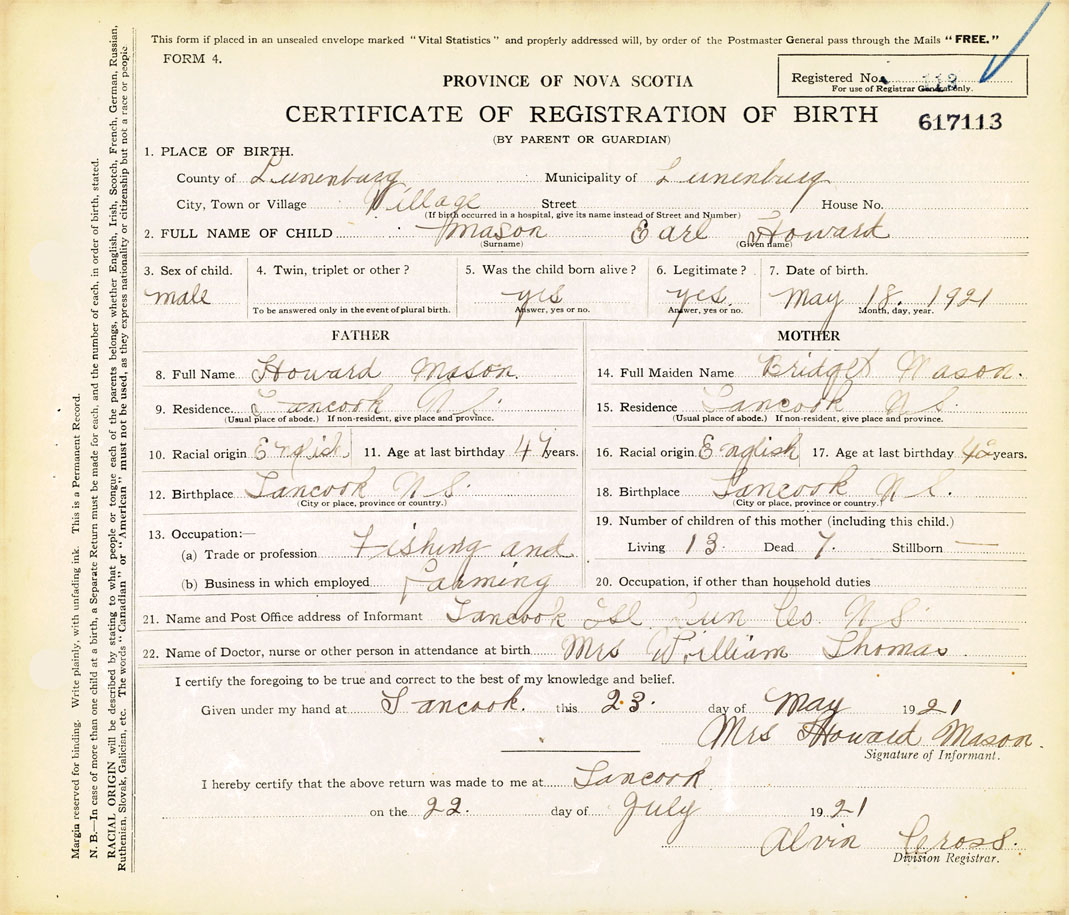 This form if placed in an unsealed envelope marked "Vital Statistics" and properly addressed will, by order of the Postmaster General pass through the Mails "FREE."
FORM 4.
PROVINCE OF NOVA SCOTIA
Registered No.
For use of Registrar General only.
CERTIFICATE OF REGISTRATION OF BIRTH
617113
(BY PARENT OR GUARDIAN)
1. PLACE OF BIRTH.
County of Lunenburg Municipality of Lunenburg
City, Town or Village Village Street House No.
(If birth occurred in a hospital, give its name instead of Street and Number)
2. FULL NAME OF CHILD Mason Earl Howard
(Surname) (Given name)
3. Sex of child. 4. Twin, triplet or other? 5. Was the child born alive? 6. Legitimate? 7. Date of birth.
male yes yes. May 18. 1921
To be answered only in the event of plural birth. Answer, yes or no. Answer, yes or no. Month, day, year.
FATHER MOTHER
8. Full Name Howard Mason. 14. Full Maiden Name Bridget Mason.
9. Residence Tancook N S. 15. Residence Tancook N S.
(Usual place of abode.) If non-resident, give place and province. (Usual place of abode.) If non-resident, give place and province.
10. Racial origin English 11. Age at last birthday 47 years. 16. Racial origin English 17. Age at last birthday years.
12. Birthplace Tancook N S. 18. Birthplace Tancook N S.
(City or place, province or country.) (City or place, province or country.)
13. Occupation:— 19. Number of children of this mother (including this child.)
(a) Trade or profession Fishing and Living 13. Dead 7. Stillborn —
(b) Business in which employed Farming 20. Occupation, if other than household duties
21. Name and Post Office address of Informant Tancook Isl Lun Co. N S
22. Name of Doctor, nurse or other person in attendance at birth Mrs William Thomas.
I certify the foregoing to be true and correct to the best of my knowledge and belief.
Given under my hand at Tancook. this 23. day of May 1921
Mrs Howard Mason.
Signature of Informant.
I hereby certify that the above return was made to me at Tancook
on the 22. day of July 1921
Alvin Cross.
Division Registrar.
Margin reserved for binding. Write plainly, with unfading ink. This is a Permanent Record.
N. B.—In case of more than one child at a birth, a Separate Return must be made for each, and the number of each, in order of birth, stated.
RACIAL ORIGIN will be described by stating to what people or tongue each of the parents belongs, whether English, Irish, Scotch, French, German, Russian,
Ruthenian, Slovak, Galician, etc. The words "Canadian" or "American" must not be used, as they express nationality or citizenship but not a race or people